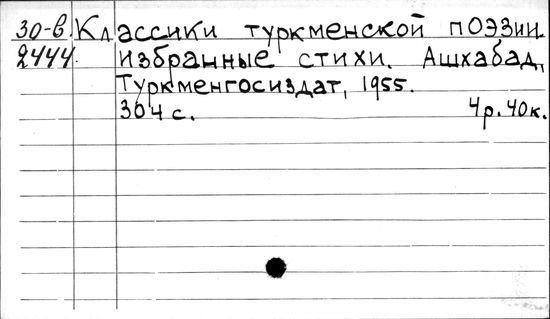 30-в. Классики туркменской поэзии.
2444. Избранные стихи. Ашхабад,
Туркменгосиздат, 1955.
304 с. 4р. 40к.